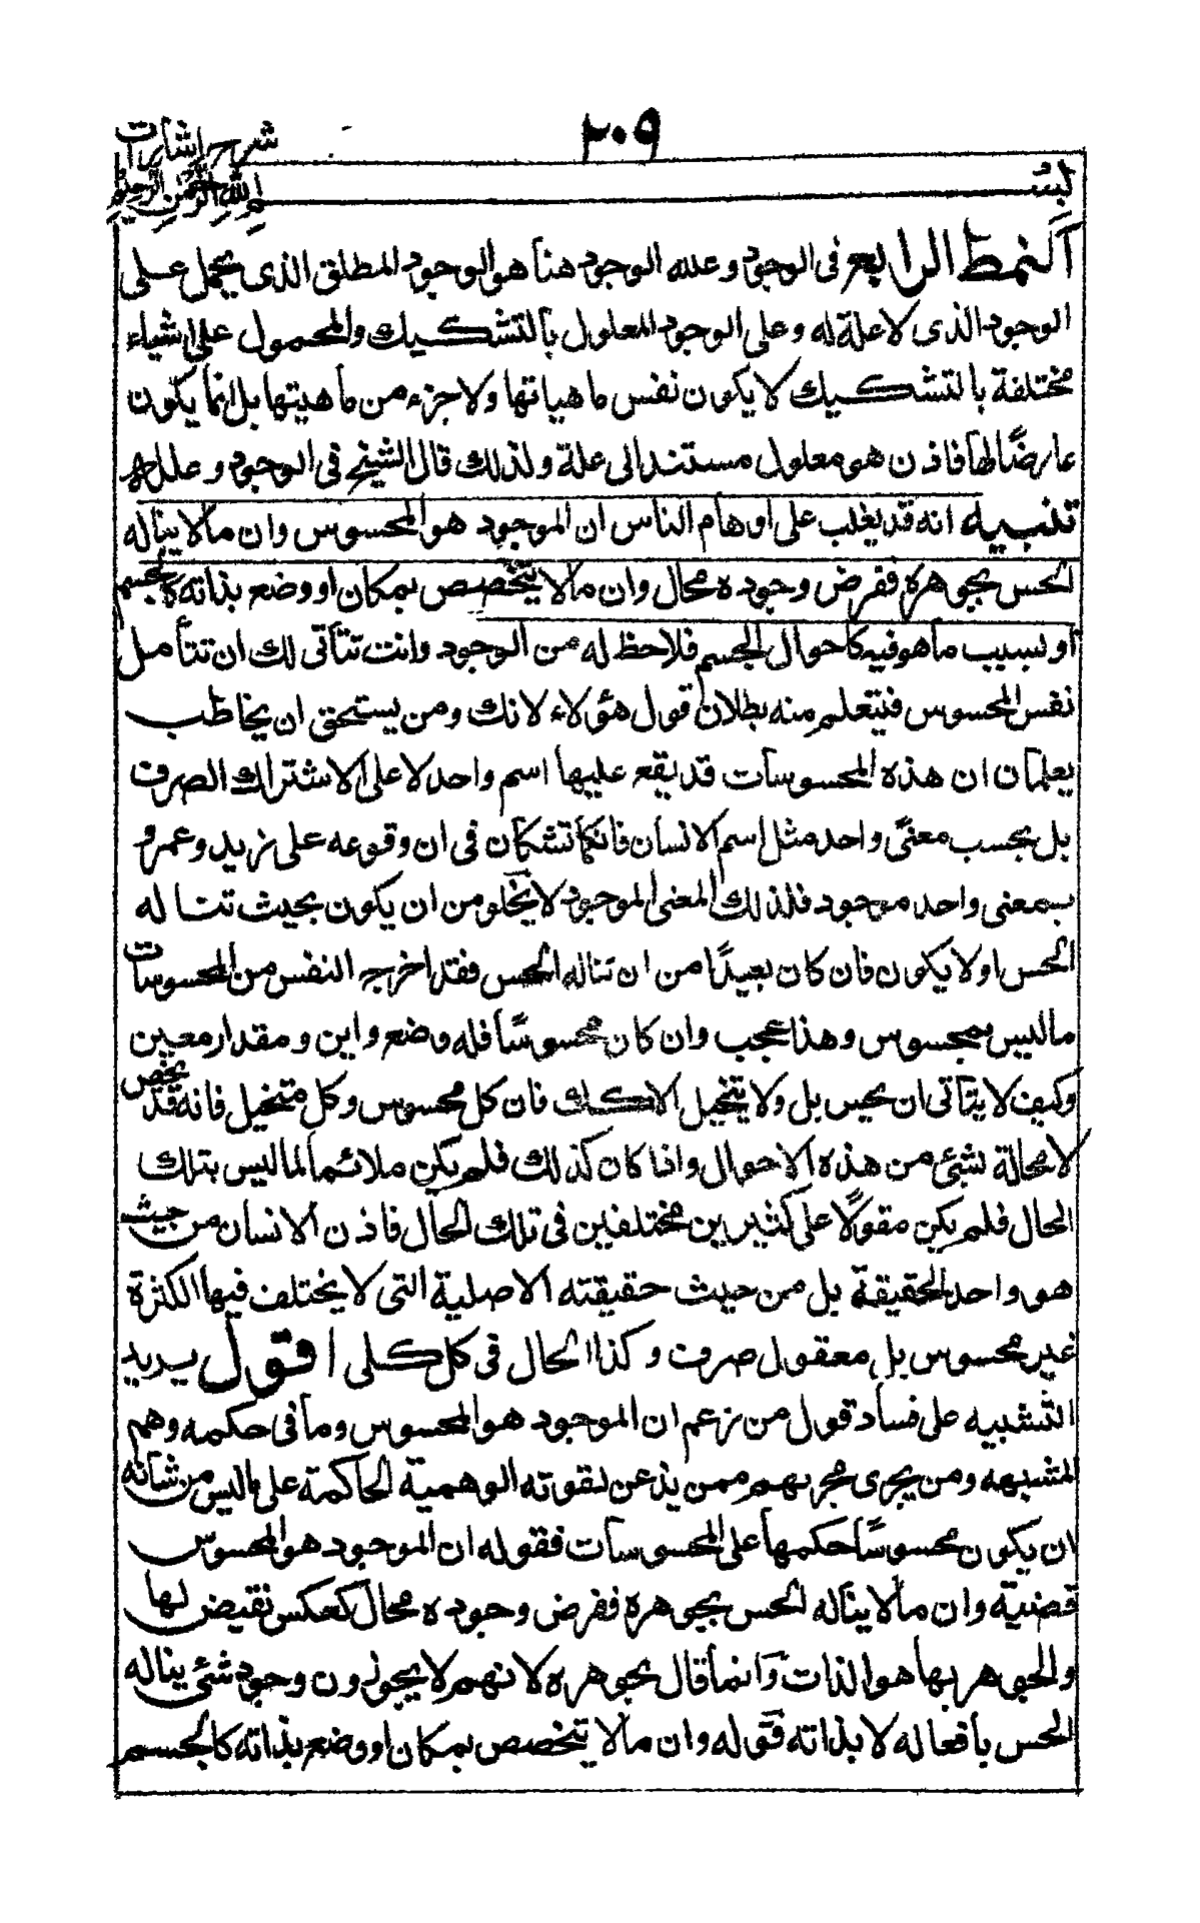 ٢٠٩
شرح اشارات
بسم الله الرحمن الرحيم
النمط الرابع فى الوجود وعلله الوجود هنا هو الوجود المطلق الذى يحمل على
الوجود الذى لا علة له وعلى الوجود المعلول بالتشكيك والمحمول على اشياء
مختلفة بالتشكيك لا يكون نفس ماهياتها ولا جزء من ماهيتها بل انما يكون
عارضًا لها فاذن هو معلول مستند الى علة ولذلك قال الشيخ فى الوجود وعلله
تنبيه انه قد يغلب على اوهام الناس ان الموجود هو المحسوس وان مالا يناله
الحس بجوهره ففرض وجوده محال وان مالا يتخصص بمكان او وضع بذاته كالجسم
او بسبب ما هو فيه كاحوال الجسم فلاحظ له من الوجود وانت تتأتى لك ان تتأمل
نفس المحسوس فنتعلم منه بطلان قول هؤلاء لانك ومن يستحق ان يخاطب
يعلمان ان هذه المحسوسات قد يقع عليها اسم واحد لا على الاشتراك الصرف
بل بحسب معنًى واحد مثل اسم الانسان فانكما تشكان فى ان وقوعه على زيد وعمرو
بمعنى واحد موجود فلذلك المعنى الموجود لا يخلو من ان يكون بحيث تناله
الحس اولا يكون فان كان بعيدًا من ان تناله الحس فقد اخرجه النفس من المحسوسات
ماليس بمحسوس وهذا عجب وان كان محسوسًا فله وضع واين ومقدار معين
وكيف لا يتأتى ان يحس بل ولا يتخيل الا كذلك فان كل محسوس وكل متخيل فانه قد يخص
لا محالة بشئ من هذه الاحوال واذا كان كذلك فلم يكن ملائما لما ليس بتلك
الحال فلم يكن مقولًا على كثيرين مختلفين فى تلك الحال فاذن الانسان من حيث
هو واحد الحقيقة بل من حيث حقيقته الاصلية التى لا يختلف فيها الكثرة
غير محسوس بل معقول صرف وكذا الحال فى كل كلى اقول يريد
التنبيه على فساد قول من زعم ان الموجود هو المحسوس وما فى حكمه وهم
المشبهه ومن يجرى مجريهم ممن يذعن لقوته الوهمية الحاكمة على ماليس من شانه
ان يكون محسوسًا حكمها على المحسوسات فقوله ان الموجود هو المحسوس
قضية وان مالا يناله الحس بجوهره ففرض وجوده محال كعكس نقيض لها
والجوهر بها هو الذات وانما قال بجوهره لانهم لا يجوزون وجود شئ يناله
الحس بافعاله لا بذاته قوله وان مالا يتخصص بمكان او وضع بذاته كالجسم